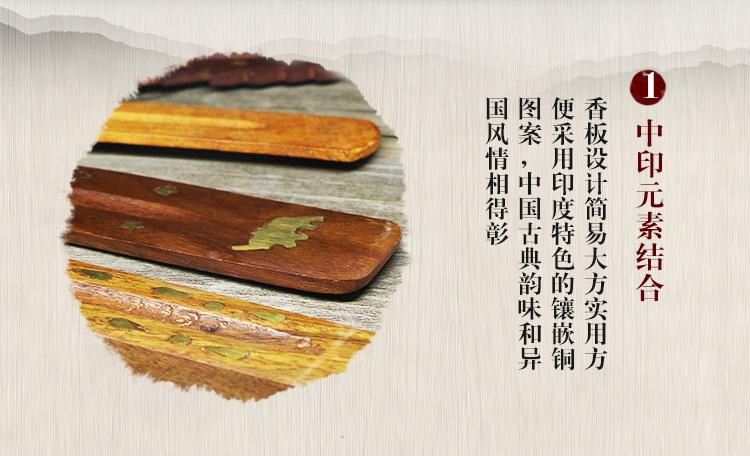 1
中印元素结合
香板设计简易大方实用方
便采用印度特色的镶嵌铜
图案，中国古典韵味和异
国风情相得彰